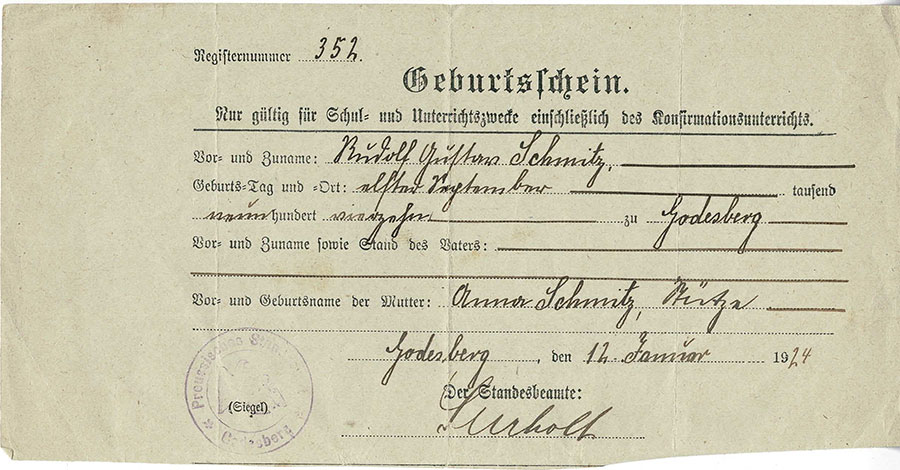 Registernummer 352.
Geburtsschein.
Nur gültig für Schul- und Unterrichtszwecke einschließlich des Konfirmationsunterrichts.
Vor- und Zuname: Rudolf Gustav Schmitz,
Geburts-Tag und -Ort: elfter September tausend
neunhundert vierzehn zu Godesberg
Vor- und Zuname sowie Stand des Vaters:
Vor- und Geburtsname der Mutter: Anna Schmitz, Stütze
Godesberg, den 12 Januar 1924
Der Standesbeamte:
(Siegel)
Preussisches
Godesberg